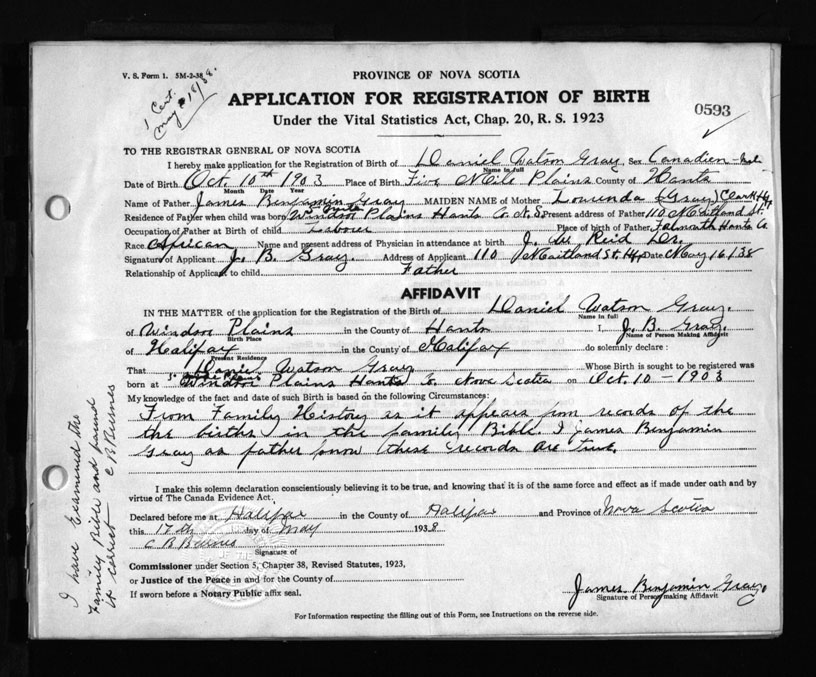 V. S. Form 1. 5M-2-38
1 Cert. May 18/38.
PROVINCE OF NOVA SCOTIA
APPLICATION FOR REGISTRATION OF BIRTH
Under the Vital Statistics Act, Chap. 20, R. S. 1923
0593
TO THE REGISTRAR GENERAL OF NOVA SCOTIA
I hereby make application for the Registration of Birth of Daniel Watson Gray Sex Canadien-Male
Name in full
Date of Birth Oct. 10th 1903 Place of Birth Five Mile Plains County of Hants
Month Date Year
Name of Father James Benjamin Gray MAIDEN NAME of Mother Lourinda (Gray) Clark
Residence of Father when child was born Windsor Plains Hants Co. N.S. Present address of Father 110 Maitland St.
Occupation of Father at Birth of child Laborer Place of birth of Father Falmouth Hants Co.
Race African Name and present address of Physician in attendance at birth J. W. Reid Dr.
Signature of Applicant J. B. Gray. Address of Applicant 110 Maitland St. Hfx Date May 16/38
Relationship of Applicant to child Father
AFFIDAVIT
IN THE MATTER of the application for the Registration of the Birth of Daniel Watson Gray.
Name in full
of Windsor Plains in the County of Hants I, J. B. Gray.
Birth Place Name of Person Making Affidavit
of Halifax in the County of Halifax do solemnly declare :
Present Residence
That Daniel Watson Gray Whose Birth is sought to be registered was
born at Windsor Plains Hants Co. Nova Scotia on Oct. 10 - 1903
My knowledge of the fact and date of such Birth is based on the following Circumstances:
From Family History as it appears from records of the
the births in the family Bible. I James Benjamin
Gray as father know these records are true.
I make this solemn declaration conscientiously believing it to be true, and knowing that it is of the same force and effect as if made under oath and by
virtue of The Canada Evidence Act.
Declared before me at Halifax in the County of Halifax and Province of Nova Scotia
this 17th day of May 1938
C B Burnes
Signature of
Commissioner under Section 5, Chapter 38, Revised Statutes, 1923,
or Justice of the Peace in and for the County of
If sworn before a Notary Public affix seal.
James Benjamin Gray.
Signature of Person making Affidavit
For Information respecting the filling out of this Form, see Instructions on the reverse side.
I have examined the
Family Bible and found
it correct
C B Burnes